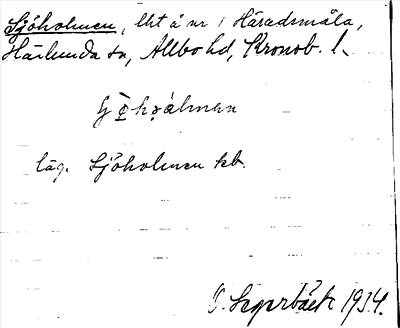 Sjöholmen, lht å nr 1 Häradsmåla,
Härlunda sn, Allbo hd, Kronob. l.
låg. Sjöholmen kb.
O. Segerbäck 1934.